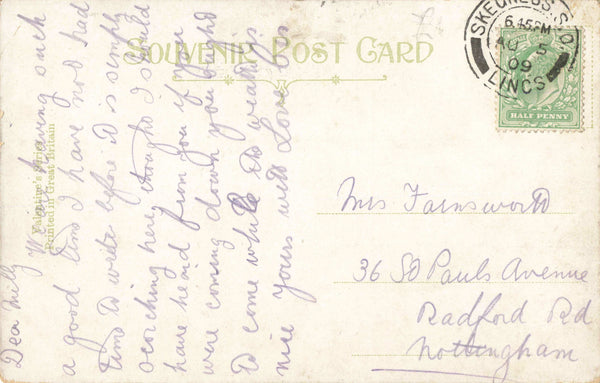 SOUVENIR POST CARD
SKEGNESS S.O.
6.45 PM
AU 5
09
LINCS
HALF PENNY
Valentine's Series
Printed in Great Britain
Dear Milly We are having such
a good time I have not had
time to write before it is simply
scorching here, thought I should
have heard from you if you
were coming down you ought
to come while the weather is
nice Yours with Love
Mrs Farnsworth
36 St Pauls Avenue
Radford Rd
Nottingham